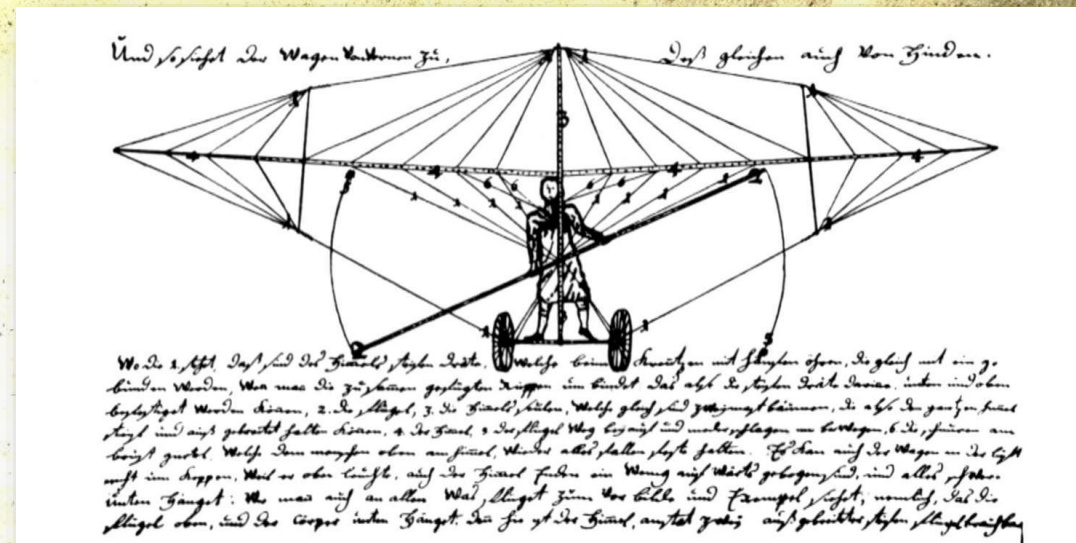 Und so siehet der Wagen von vornen zu,
Deß gleichen auch von Hinden.
Wo die 1. stehet, daß sind des Himels steifen dräte, welche beim Kreützen mit öhren, die gleich mit ein ge=
bunden werden, Wen man die zusamen gefügten Rippen um bindet das also die steifen dräte unten und oben
befestiget werden könen, 2. die flügel, 3. die Himels säulen, Welche gleich sind die also den gantzen himel
steif und auß gebreitet halten könen, 4. der Himel, 5 der flügel Weg und nieder schlagen 6. die schnüren am
Welche dem menschen oben am himel, Wieder alles fallen feste halten. Es kan auch der Wagen in der lufft
nicht um Weil er oben leichte, auch der Himel Enden ein Wenig auf wärts gebogen sind, und alles schwer
unten hänget: Wie man auch an allen Was flieget zum Vor bilde und Exempel siehet, nemlich, das die
flügel oben, und der cörper unten hänget. den hie ist der Himel, anstat zwey auß gebreiteter steifen flügel